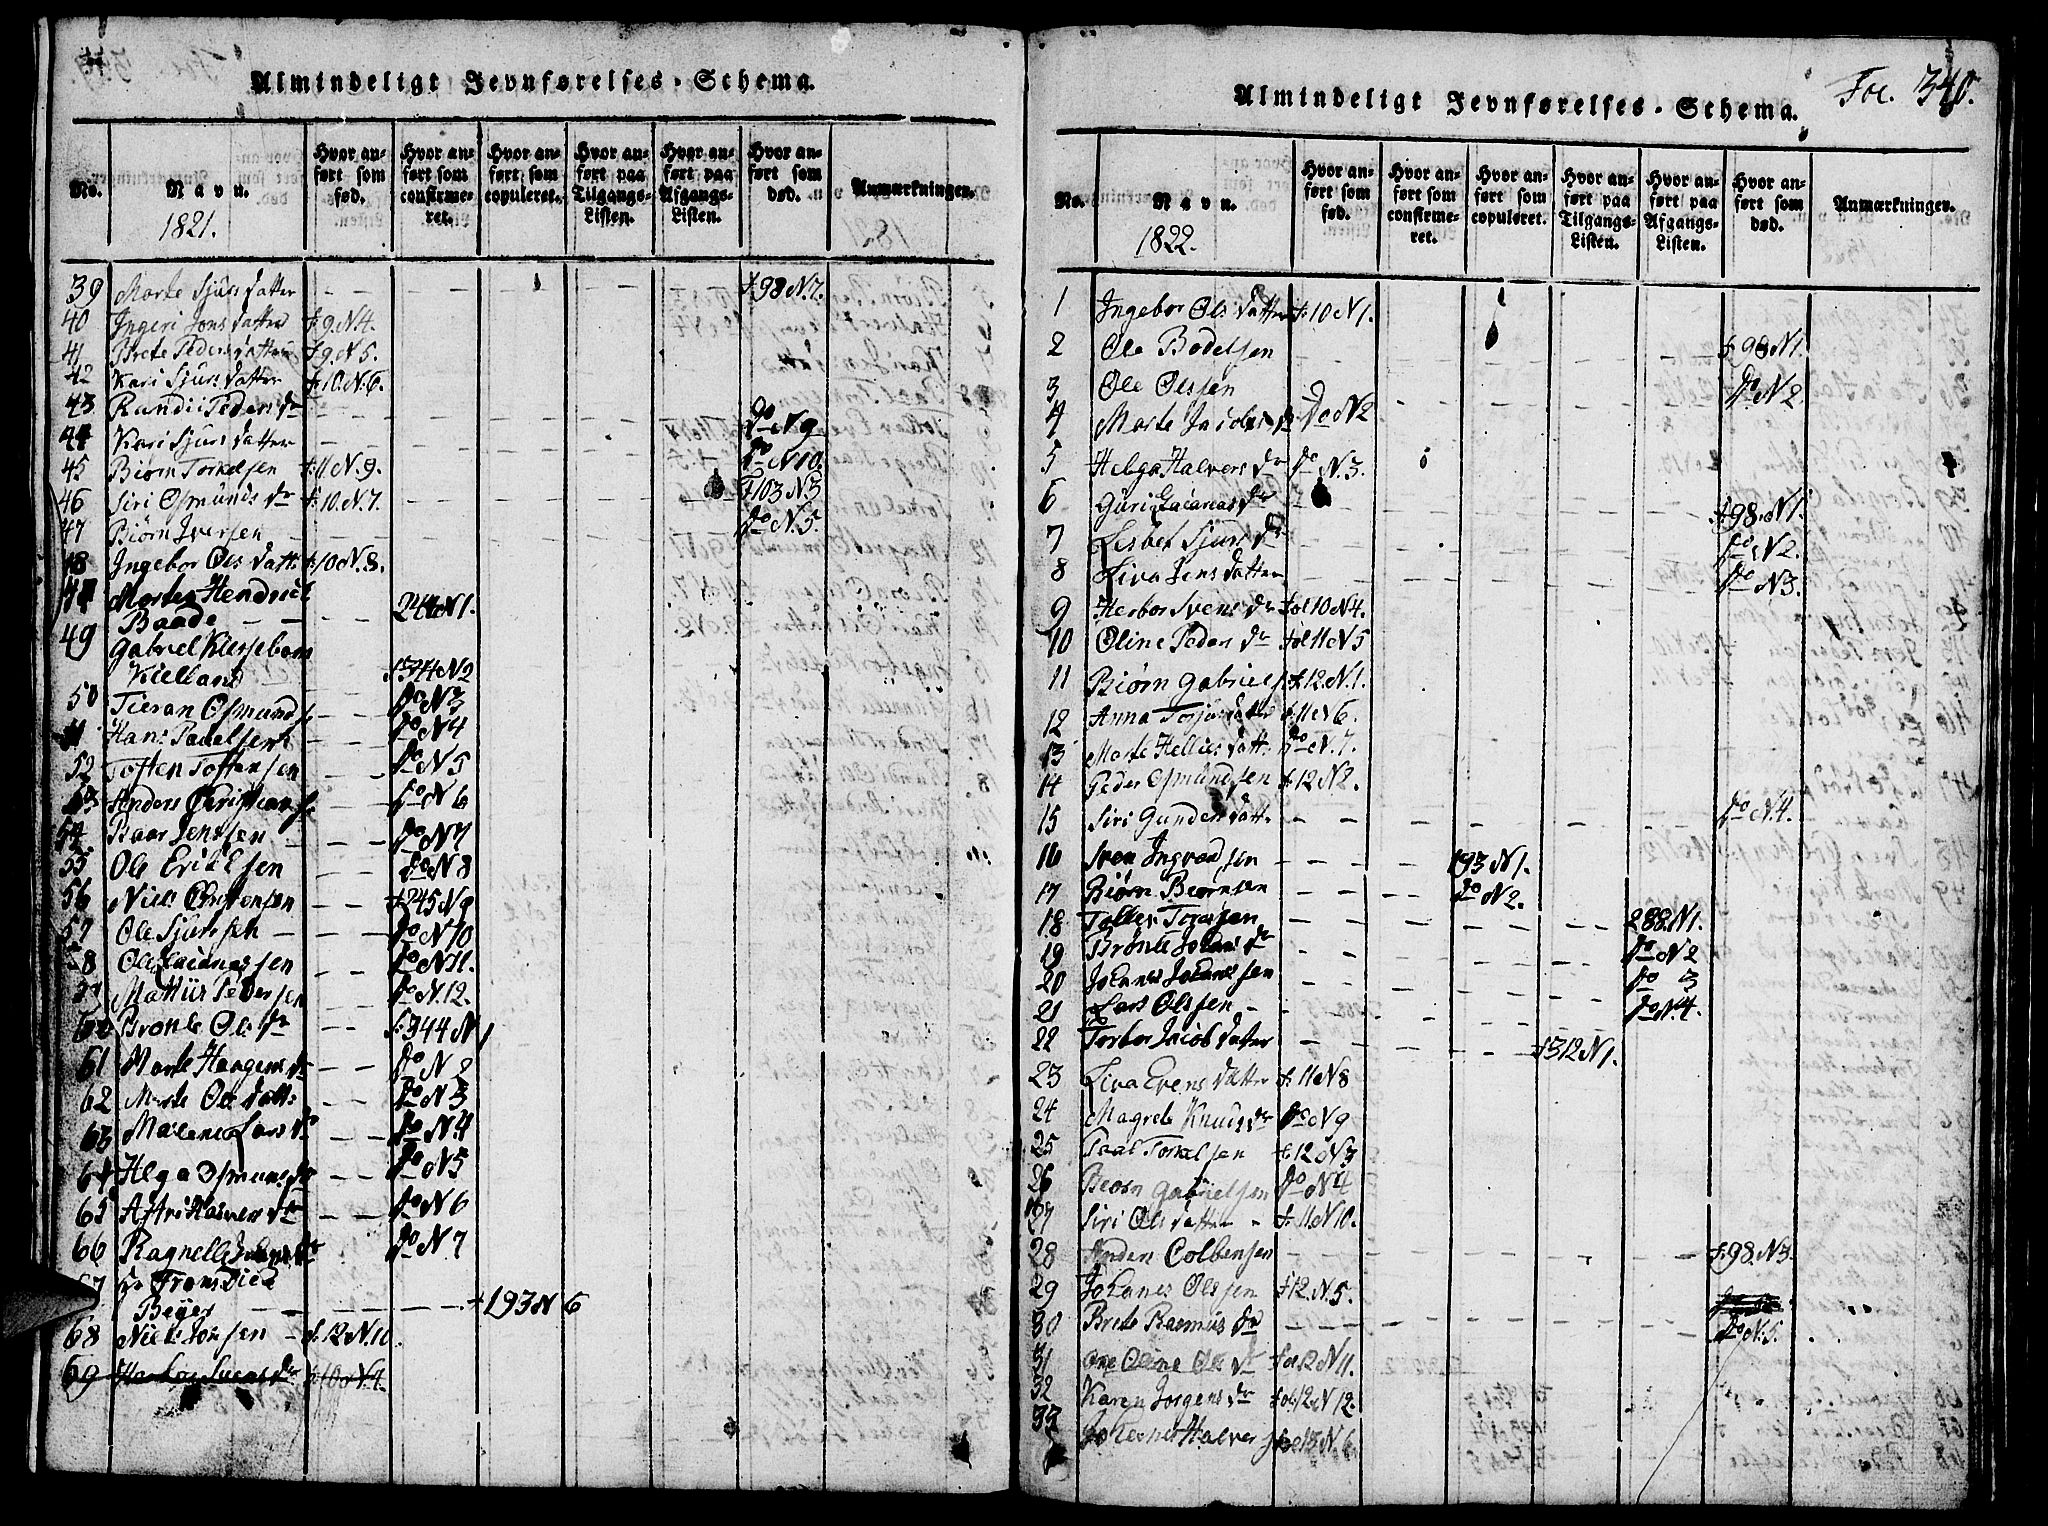 Almindeligt Jevnførelses-Schema.
No.
Navn.
1821.
Hvor anført som fød.
Hvor anført som confirmeret.
Hvor anført som copuleret.
Hvor anført paa Tilgangs-Listen.
Hvor anført paa Afgangs-Listen.
Hvor anført som død.
Anmærkninger.
39 Marte Sjurs datter f. 98 N. 7.
40 Ingeri Jons datter f. 9. N 4.
41 Brete Peders datter f 9. N 5.
42 Kari Sjurs datter f. 10. N. 6.
43 Randi Peders dr do N. 9
44 Kari Sjurs datter do N 10.
45 Biørn Torkelsen f. 11 N. 9. f 103 N. 3
46 Siri Osmunds dr f. 10. N. 7.
47 Biørn Iversen do N. 5.
48 Ingebor Ols datt: f. 10 N. 8.
Hendrich
Baade 244 N 1.
49 Gabriel
Kielland f 244 N 2
50 Osmunds. do N 3
51 Hans Paaelsen do N 4
52 Tosten Tostensen do N 5
53 Anders Christians. do N 6
54 Baar Jenssen do N 7
55 Ole Eriksen do N 8
56 Niels Christensen f 245 N 9
57 Ole Sjurssen do N 10
58 Ole sen do N 11.
59 Mattiis Pedersen do N. 12.
60 Brønle Ols dr f. 344 N 1
61 Marte Haagens dr do N 2
62 Marte Ols datt: do N 3
63 Malene Lars dr do N 4
64 Helga Osmunds dr do N 5
65 Astri Halvers dr do N 6
66 Ragnelle dr do N 7
67 Hr Frans Died
Beyer f 193 N 6
68 Niels Jonsen f. 12 N. 10.
69 Herbor Svens dr f 10 N. 4.
Almindeligt Jevnførelses-Schema.
Fol. 340.
No.
Navn.
1822.
Hvor anført som fød.
Hvor anført som confirmeret.
Hvor anført som copuleret.
Hvor anført paa Tilgangs-Listen.
Hvor anført paa Afgangs-Listen.
Hvor anført som død.
Anmærkninger.
1 Ingebor Ols datter f. 10 N 1.
2 Ole Bodelsen f. 98 N 1.
3 Ole Olssen do N 2
4 Marte Jacobs dr do N 2
5 Helga Halvers dr do N. 3.
6 Guri dr f 98. N 1.
7 Lisbet Sjurs dr do N 2.
8 Liva Jens datter do N 3.
9 Herbor Svens dr fol 10 N 4.
10 Oline Peders dr fol 11 N 5
11 Biørn Gabriels. f. 12. N. 1.
12 Anna Torjus datter f. 11 N 6.
13 Marte Hellies datt: do N. 7.
14 Peder Osmundsen f. 12 N 2.
15 Siri Gunders datt: do N. 4.
16 Sven Ingvedsen 193 N 1.
17 Biørn Beørnsen do N 2.
18 Tollev 288. N 1.
19 Brønle Johans dr do N 2
20 Johanes Johanessen do 3
21 Lars Olssen do N. 4.
22 Torbor Jacob datter f 312 N 1.
23 Liva Evens datter f. 11 N 8
24 Magrete Knuds dr do N 9
25 Paal Torkelsen f 12 N 3
26 Beørn Gabrielsen do N 4
27 Siri Ols datter f. 11 N 10.
28 Anders Colbensen f. 98. N 3.
29 Johanes Olssen f 12. N. 5.
30 Brete Rasmus dr do N. 5.
31 Ane Oline Ols dr fol 12 N 11.
32 Karen Jørgens dr fol 12 N 12.
33 Johannes Halvers. fol 13 N. 6.